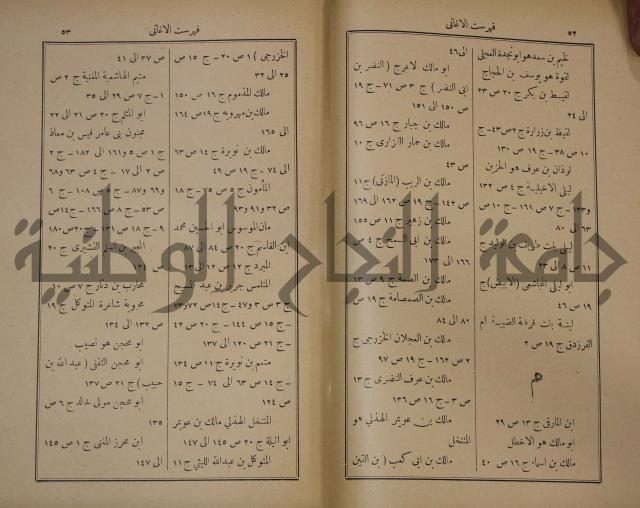 ٥٢
فهرست الاغانى
لخيم بن سعد هو ابو نجدة العجلى
لقوة هو يوسف بن الحجاج
لقيط بن بكر ج ٢٠ ص ٢٣
الى ٢٤
لقيط بن زرارة ج ٢ ص ٤٣ - ج
١٠ ص ٣٨ - ج ١٩ ص ١٣٠
لوذان بن عوف هو الحزين
ليلى الاخيلية ج ٤ ص ١٣٢
و ١٣٣ - ج ٧ ص ١٦١ - ج ١٠ ص
٦٣ الى ٨٠
ليلى بنت طريف بن الوليد ج
١١ ص ٨ الى
ابو ليلى المجاشعى (الابيض) ج
١٩ ص ٤٦
لينة بنت قرظة الضبية ام
الفرزدق ج ١٩ ص ٢
م
ابن المارقى ج ١٣ ص ٢٩
ابو مالك هو الاخطل
مالك بن اسماء ج ١٦ ص ٤٠
الى ٤٦
ابو مالك لاعرج (النضر بن
ابى النضر) ج ٣ ص ٧١ - ج ١٩
ص ١٥٠ الى ١٥١
مالك بن جبار ج ١٦ ص ٩٦
مالك بن حمار الفزارى ج ١٠
ص ٤٣
مالك بن الريب (المازنى) ج ١١
ص ١٤٢ - ج ١٩ ص ١٦٢ الى ١٦٩
مالك بن زهير ج ١١ ص ١٥٥
مالك بن ابى السمح ج ٤ ص
١٦٦ الى ١٧٣
مالك بن الصمة ج ٩ ص ١٣
مالك بن الصمصامة ج ١٩ ص
٨٢ الى ٨٤
مالك بن العجلان الخزرجى ج
٢ ص ١٦٢ - ج ١٩ ص ٩٧
مالك بن عوف النضرى ج ١٣
ص ٣ - ج ١٦ ص ١٣٦
مالك بن عويمر الهذلي هو
المتنخل
مالك بن ابى كعب (بن القين
فهرست الاغانى
٥٣
الخزرجى) ١ ص ٢٠ - ج ١٥ ص
٢٥ الى ٣٢
مالك المذموم ج ١٦ ص ١٥٠
مالك بن مهرويه ج ١٩ ص ١٦٤
الى ١٦٥
مالك بن نويرة ج ١٤ ص ٦٣
الى ٧٤ - ج ١٩ ص ٤٩
المأمون ج ٥ ص ٧٥ - ج ١٨
ص ٣٢ و ٩١ و ٩٣
مان الموسوس ابو الحسين محمد
ابن القاسم ج ٢٠ ص ٨٤ الى ٨٧
المبرد ج ١٢ ص ١٢ الى ١٣
المتلمس جرير بن عبد المسيح
ج ٣ ص ٣ و ٤٧ - ج ١٤ ص ٧٢ و ٧٣
- ج ١٥ ص ١٤٤ - ج ٢٠ ص ٤٢
- ج ٢١ ص ١٢٠ الى ١٣٧
متمم بن نويرة ج ١١ ص ١٣٤
- ج ١٤ ص ٦٣ الى ٧٤ - ج ١٥
ص ١٢٤
المتنخل الهذلي مالك بن عويمر
ابو اثيلة ج ٢٠ ص ١٤٥ الى ١٤٧
المتوكل بن عبد الله الليثى ج ١١
ص ٣٧ الى ٤١
متيم الهاشمية المغنية ج ٢ ص
١ - ج ٧ ص ٢٩ الى ٣٥
ابو المثلم ج ٢٠ ص ٢١ الى ٢٢
مجنون بنى عامر قيس بن معاذ
ج ١ ص ٥ و ١٦١ الى ١٨٢ - ج ٢
ص ٢ الى ١٧ - ج ٤ ص ٦٣ و ٦٨
و ٦٩ و ٨٧ - ج ٥ ص ١٠٨ - ج ٦
ص ٥٣ - ج ٨ ص ١٦٦ - ج ١٤ ص
٩ - ج ١٨ ص ١٣١ - ج ٢٠ ص ١٨٠
القشيرى ج ٢٠
ص ١٢٤
محارب بن دثار ج ٧ ص ١٠
محبوبة شاعرة المتوكل ج ١٩
ص ١٣٢ الى ١٣٤
ابو محجن هو نصيب
ابو محجن الثقفى (عبد الله بن
حبيب) ج ٢١ ص ١٣٧
ابو محجن مولى خالد ج ٦ ص
١٣٥
ابن محرز المغنى ج ١ ص ١٤٥
الى ١٤٧
جامعة النجاح الوطنية